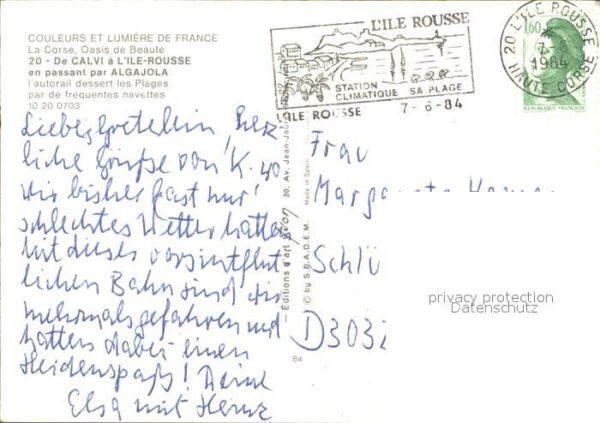 COULEURS ET LUMIÈRE DE FRANCE
La Corse, Oasis de Beauté
20 - De CALVI à L'ILE-ROUSSE
en passant par ALGAJOLA
l'autorail dessert les Plages
par de fréquentes navettes
10 20 0703
Liebes Gretelin, Herz-
liche Grüße von K. wo
wir bisher fast nur
schlechtes Wetter hatten
Mit dieser vorsintflut-
lichen Bahn sind wir
mehrmals gefahren und
hatten dabei einen
Heidenspaß! Deine
Elsa mit Heinz
L'ILE ROUSSE
STATION
CLIMATIQUE SA PLAGE
L'ILE ROUSSE 7-6-84
20 L'ILE ROUSSE
1984
HAUTE CORSE
1,60
REPUBLIQUE FRANÇAISE
Editions d'art yvon 30, Av. Jean-Jau
© by S.P.A.D.E.M. Made in Spain
84
Frau
Schlü
D303
privacy protection
Datenschutz